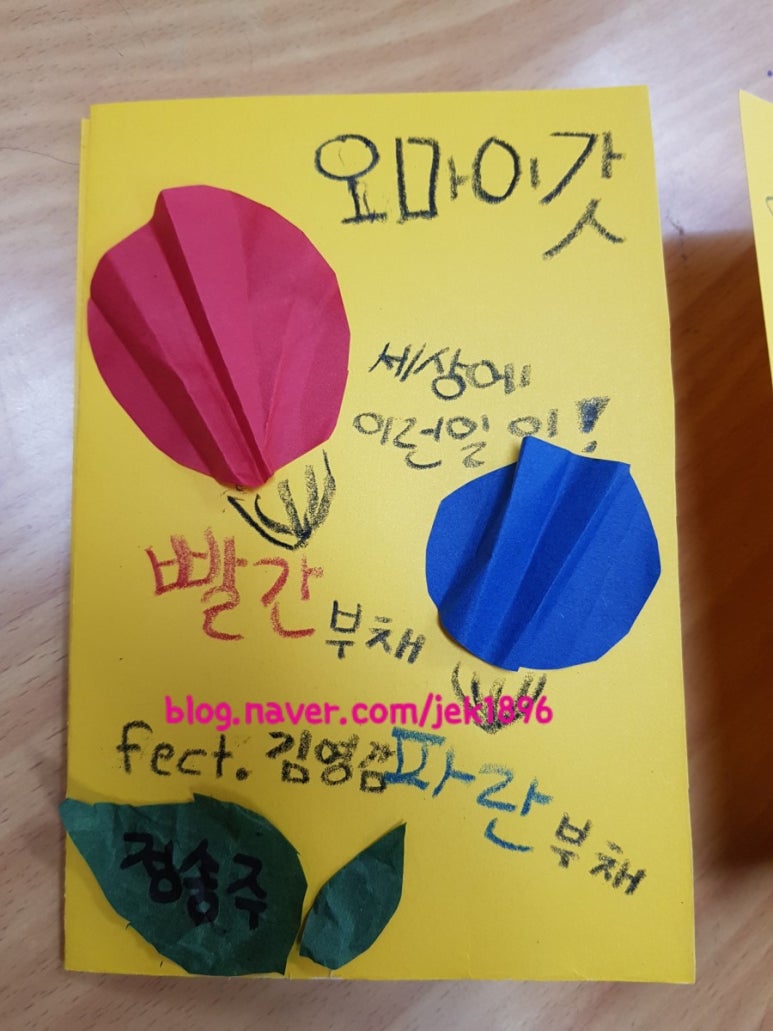 오마이갓
세상에
이런일이!
빨간 부채
blog.naver.com/jek1896
fect. 김영
파란 부채
정송주